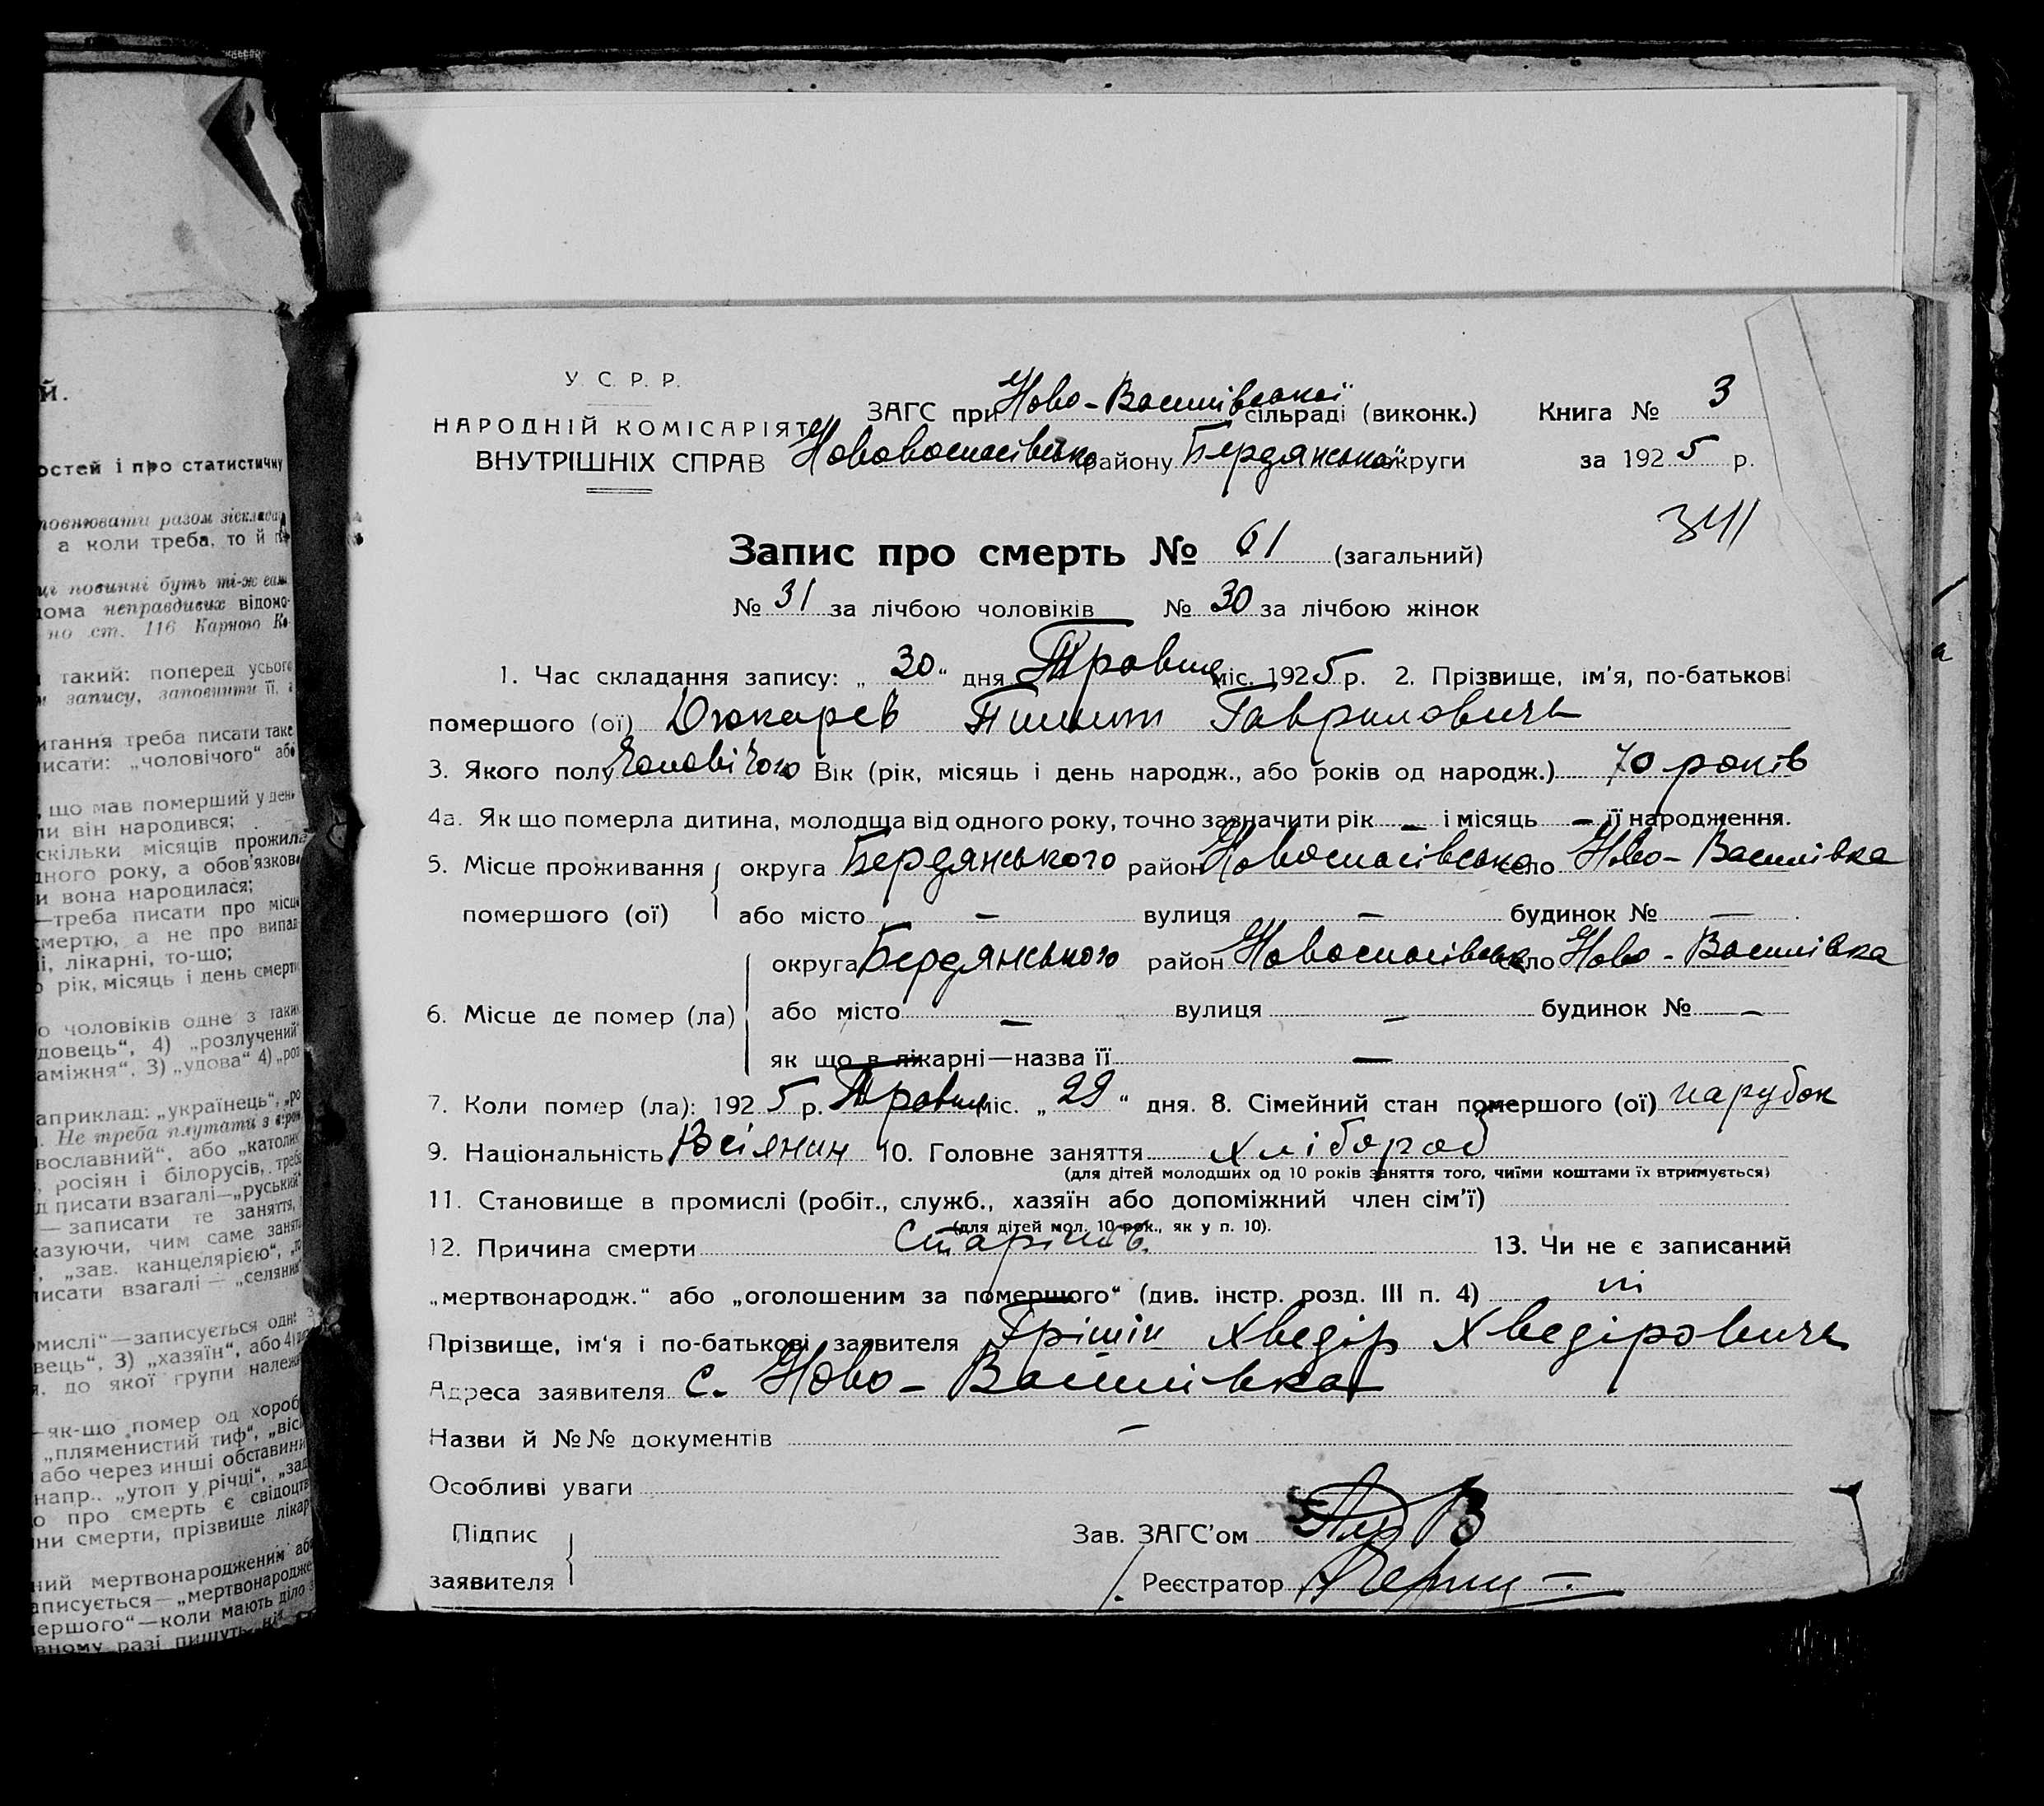 й.
остей і про статистичну
повнювати разом зіскладан
а коли треба, то й п
ці повинні буть ті-ж сам
дома неправдивих відомо-
но ст. 116 Карного Ко
такий: поперед усього
м запису, заповнити її, а
итання треба писати таке
писати: „чоловічого“ або
що мав померший у день
ли він народився;
скільки місяців прожила
дного року, а обов'язково
и вона народилася;
—треба писати про місце
смертю, а не про випад
і, лікарні, то-що;
рік, місяць і день смерти
о чоловіків одне з таких
довець“, 4) „розлучений“
аміжня“, 3) „удова“ 4) „роз
априклад: „українець“, „ро
Не треба плутати з віром
вославний“, або „католик
, росіян і білорусів, треба
д писати взагалі—„руський“
— записати те заняття,
казуючи, чим саме занят
, „зав. канцелярією“, „то
писати взагалі — „селянин
омислі“—записується одне з
вець“, 3) „хазяїн“, або 4)
я, до якої групи належ
—як-що помер од хороб
„пляменистий тиф“, „вісп
або через инші обставини
напр.. „утоп у річці“, „зад
о про смерть є свідоцтв
ни смерти, прізвище лікар
ний мертвонародженим або
аписується—„мертвонародже
мершого“—коли мають діло з
вному разі пишуть „ні“
У. С. Р. Р.
НАРОДНІЙ КОМІСАРІЯТ
ВНУТРІШНІХ СПРАВ
ЗАГС при Ново-Василівської сільраді (виконк.) Книга № 3
Новоспасівсько району Бердянської округи за 1925 р.
341
Запис про смерть № 61 (загальний)
№ 31 за лічбою чоловіків № 30 за лічбою жінок
1. Час складання запису: „30“ дня Травня міс. 1925 р. 2. Прізвище, ім'я, по-батькові
помершого (ої) Дюкарев Пилип Гаврилович
3. Якого полу Чоловічого Вік (рік, місяць і день народж., або років од народж.) 70 років
4а. Як що померла дитина, молодща від одного року, точно зазначити рік — і місяць — її народження.
5. Місце проживання округа Бердянського район Новоспасівсько село Ново-Василівка
помершого (ої) або місто — вулиця — будинок № —
округа Бердянського район Новоспасівсько село Ново-Василівка
6. Місце де помер (ла) або місто — вулиця — будинок № —
як що в лікарні—назва її —
7. Коли помер (ла): 1925 р. Травня міс. „29“ дня. 8. Сімейний стан помершого (ої) парубок
9. Національність Росіянин 10. Головне заняття хлібороб
(для дітей молодших од 10 років заняття того, чиїми коштами їх втримується)
11. Становище в промислі (робіт., служб., хазяїн або допоміжний член сім'ї)
(для дітей мол. 10 рок., як у п. 10).
12. Причина смерти старість. 13. Чи не є записаний
„мертвонародж.“ або „оголошеним за помершого“ (див. інстр. розд. III п. 4) ні
Прізвище, ім'я і по-батькові заявителя Грішін Хведір Хведірович
Адреса заявителя с. Ново-Василівка
Назви й №№ документів —
Особливі уваги
Підпис
заявителя
Зав. ЗАГС'ом
Реєстратор